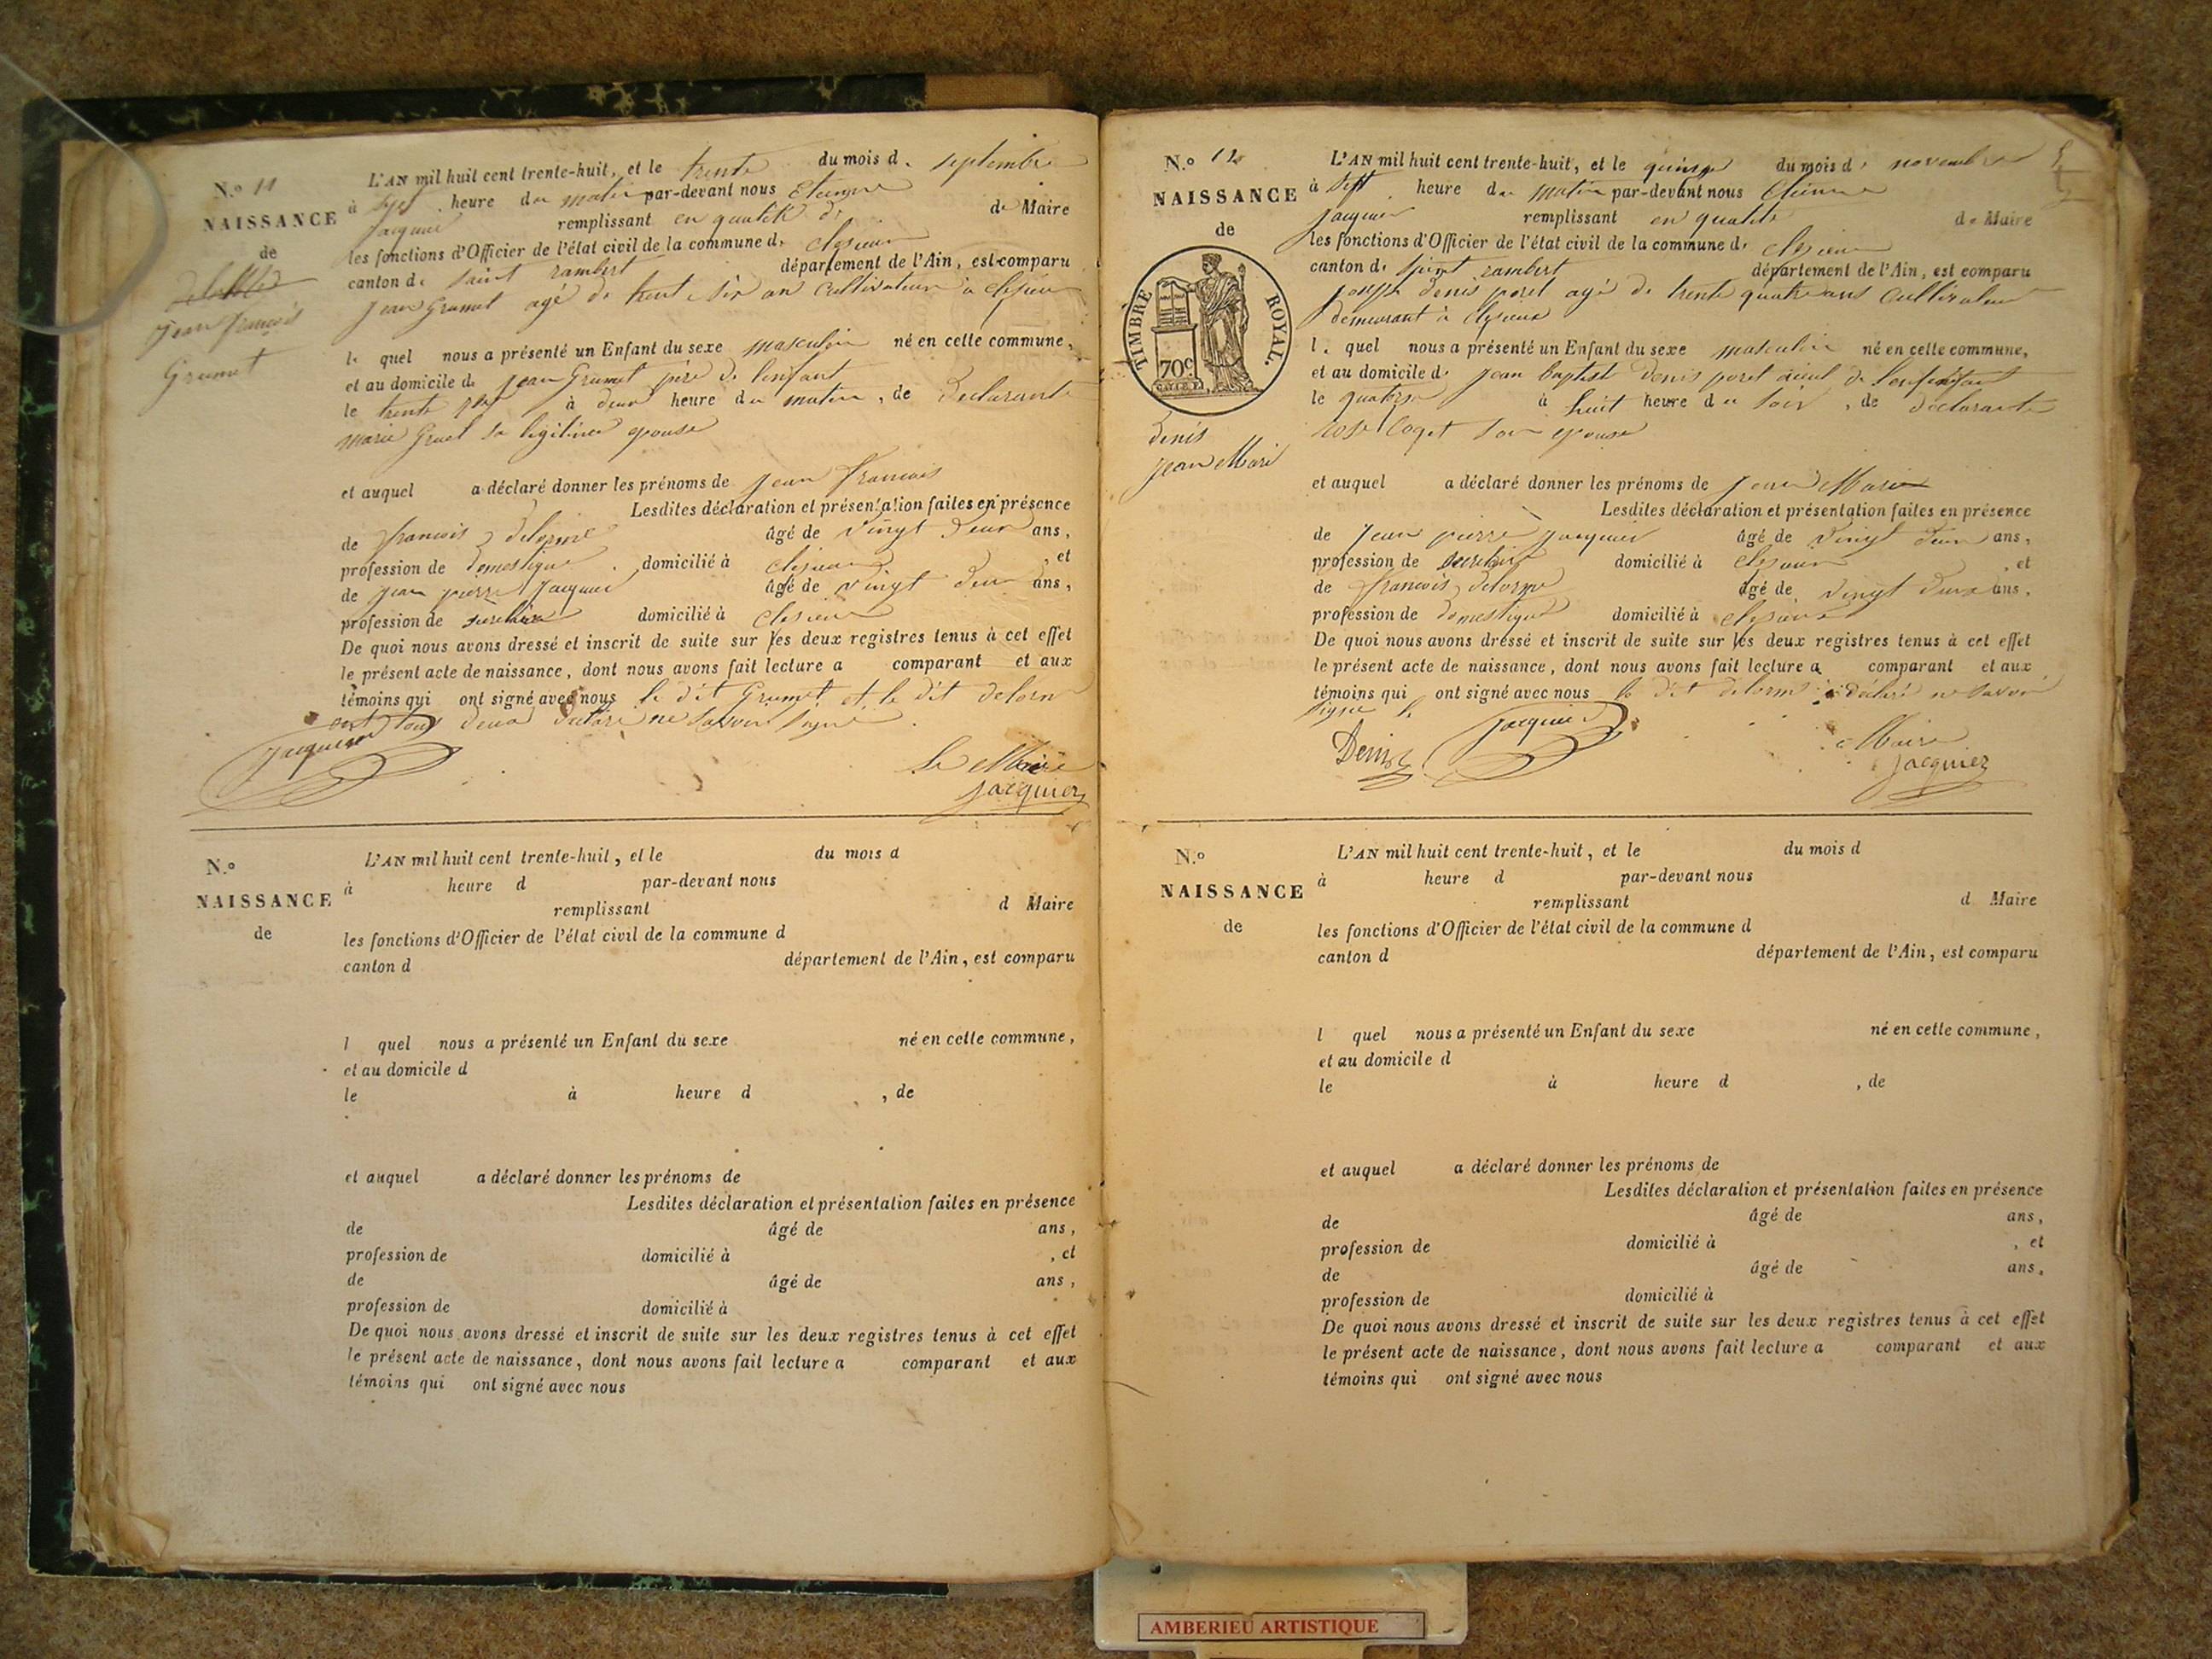 N.o 11
NAISSANCE
de
Jean françois
Grumet
L'AN mil huit cent trente-huit, et le trente du mois de septembre
à sept heure du matin par-devant nous Etienne
Jacquier remplissant en qualité de de Maire
les fonctions d'Officier de l'état civil de la commune de clesieu
canton de saint rambert département de l'Ain, est comparu
Jean Grumet agé de trente six an Cultivateur à clesieu
le quel nous a présenté un Enfant du sexe masculin né en cette commune,
et au domicile de jean Grumet père de lenfant
le trente à deux heure du matin, de Declarante
marie Gruel sa legitime epouse
et auquel a déclaré donner les prénoms de Jean francois
Lesdites déclaration et présentation faites en présence
de francois delorme âgé de vingt deux ans,
profession de domestique domicilié à clesieu, et
de jean pierre Jacquier âgé de vingt deux ans,
profession de secretaire domicilié à clesieu
De quoi nous avons dressé et inscrit de suite sur les deux registres tenus à cet effet
le présent acte de naissance, dont nous avons fait lecture a comparant et aux
témoins qui ont signé avec nous le dit Grumet et le dit delorm
ont tous deux declaré ne savoir signé
Jacquier
le Maire
Jacquier
N.o
NAISSANCE
de
L'AN mil huit cent trente-huit, et le du mois d
à heure d par-devant nous
remplissant d Maire
les fonctions d'Officier de l'état civil de la commune d
canton d département de l'Ain, est comparu
l quel nous a présenté un Enfant du sexe né en cette commune,
et au domicile d
le à heure d , de
et auquel a déclaré donner les prénoms de
Lesdites déclaration et présentation faites en présence
de âgé de ans,
profession de domicilié à , et
de âgé de ans,
profession de domicilié à
De quoi nous avons dressé et inscrit de suite sur les deux registres tenus à cet effet
le présent acte de naissance, dont nous avons fait lecture a comparant et aux
témoins qui ont signé avec nous
N.o 12
NAISSANCE
de
TIMBRE ROYAL.
70c
denis
jean Marie
L'AN mil huit cent trente-huit, et le quinze du mois de novembre
à sept heure du matin par-devant nous Etienne
Jacquier remplissant en qualité de Maire
les fonctions d'Officier de l'état civil de la commune de clesieu
canton de saint rambert département de l'Ain, est comparu
joseph denis poret agé de trente quatre ans Cultivateur
demeurant à clesieux
le quel nous a présenté un Enfant du sexe masculin né en cette commune,
et au domicile de jean baptist denis poret aieul de
le quatorze à huit heure du soir, de déclarante
rose son epouse
et auquel a déclaré donner les prénoms de jean Marie
Lesdites déclaration et présentation faites en présence
de jean pierre jacquier âgé de vingt deux ans,
profession de secretaire domicilié à clesieu, et
de francois delorme âgé de vingt deux ans,
profession de domestique domicilié à clesieu
De quoi nous avons dressé et inscrit de suite sur les deux registres tenus à cet effet
le présent acte de naissance, dont nous avons fait lecture a comparant et aux
témoins qui ont signé avec nous le dit delorme a declaré ne savoir
signé le
Denis
Jacquier
Maire
Jacquier
N.o
NAISSANCE
de
L'AN mil huit cent trente-huit, et le du mois d
à heure d par-devant nous
remplissant d Maire
les fonctions d'Officier de l'état civil de la commune d
canton d département de l'Ain, est comparu
l quel nous a présenté un Enfant du sexe né en cette commune,
et au domicile d
le à heure d , de
et auquel a déclaré donner les prénoms de
Lesdites déclaration et présentation faites en présence
de âgé de ans,
profession de domicilié à , et
de âgé de ans,
profession de domicilié à
De quoi nous avons dressé et inscrit de suite sur les deux registres tenus à cet effet
le présent acte de naissance, dont nous avons fait lecture a comparant et aux
témoins qui ont signé avec nous
AMBERIEU ARTISTIQUE